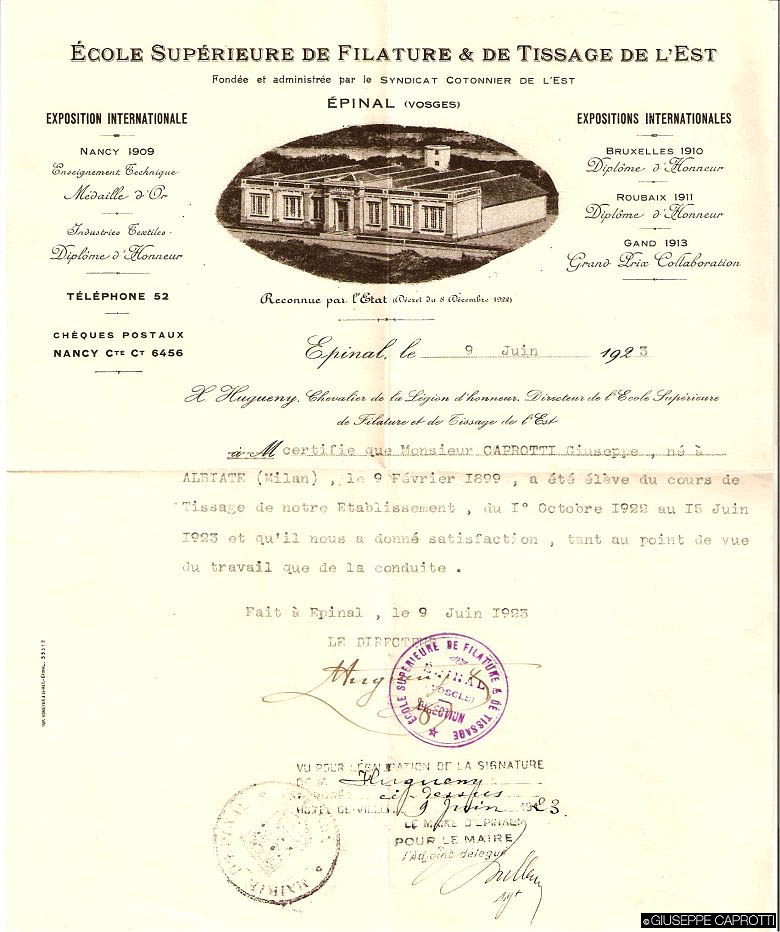 ÉCOLE SUPÉRIEURE DE FILATURE & DE TISSAGE DE L'EST
Fondée et administrée par le SYNDICAT COTONNIER DE L'EST
ÉPINAL (VOSGES)
EXPOSITION INTERNATIONALE
NANCY 1909
Enseignement Technique
Médaille d'Or
Industries Textiles
Diplôme d'Honneur
TÉLÉPHONE 52
CHÈQUES POSTAUX
NANCY CTE CT 6456
EXPOSITIONS INTERNATIONALES
BRUXELLES 1910
Diplôme d'Honneur
ROUBAIX 1911
Diplôme d'Honneur
GAND 1913
Grand Prix Collaboration
Reconnue par l'État (Décret du 8 Décembre 1922)
Epinal, le 9 Juin 1923
H. Hugueny, Chevalier de la Légion d'honneur, Directeur de l'Ecole Supérieure
de Filature et de Tissage de l'Est
à M certifie que Monsieur CAPROTTI Giuseppe , né à
ALBIATE (Milan) , le 9 Février 1899 , a été élève du cours de
Tissage de notre Etablissement , du 1° Octobre 1922 au 15 Juin
1923 et qu'il nous a donné satisfaction , tant au point de vue
du travail que de la conduite .
Fait à Epinal , le 9 Juin 1923
LE DIRECTEUR
Hugueny
ÉCOLE SUPÉRIEURE DE FILATURE & DE TISSAGE
ÉPINAL
(VOSGES)
DIRECTION
VU POUR LÉGALISATION DE LA SIGNATURE
DE M. Hugueny
ci-dessus
HÔTEL DE VILLE 9 Juin 1923.
LE MAIRE D'ÉPINAL
POUR LE MAIRE
l'Adjoint délégué
MAIRIE D'EPINAL
©GIUSEPPE CAPROTTI